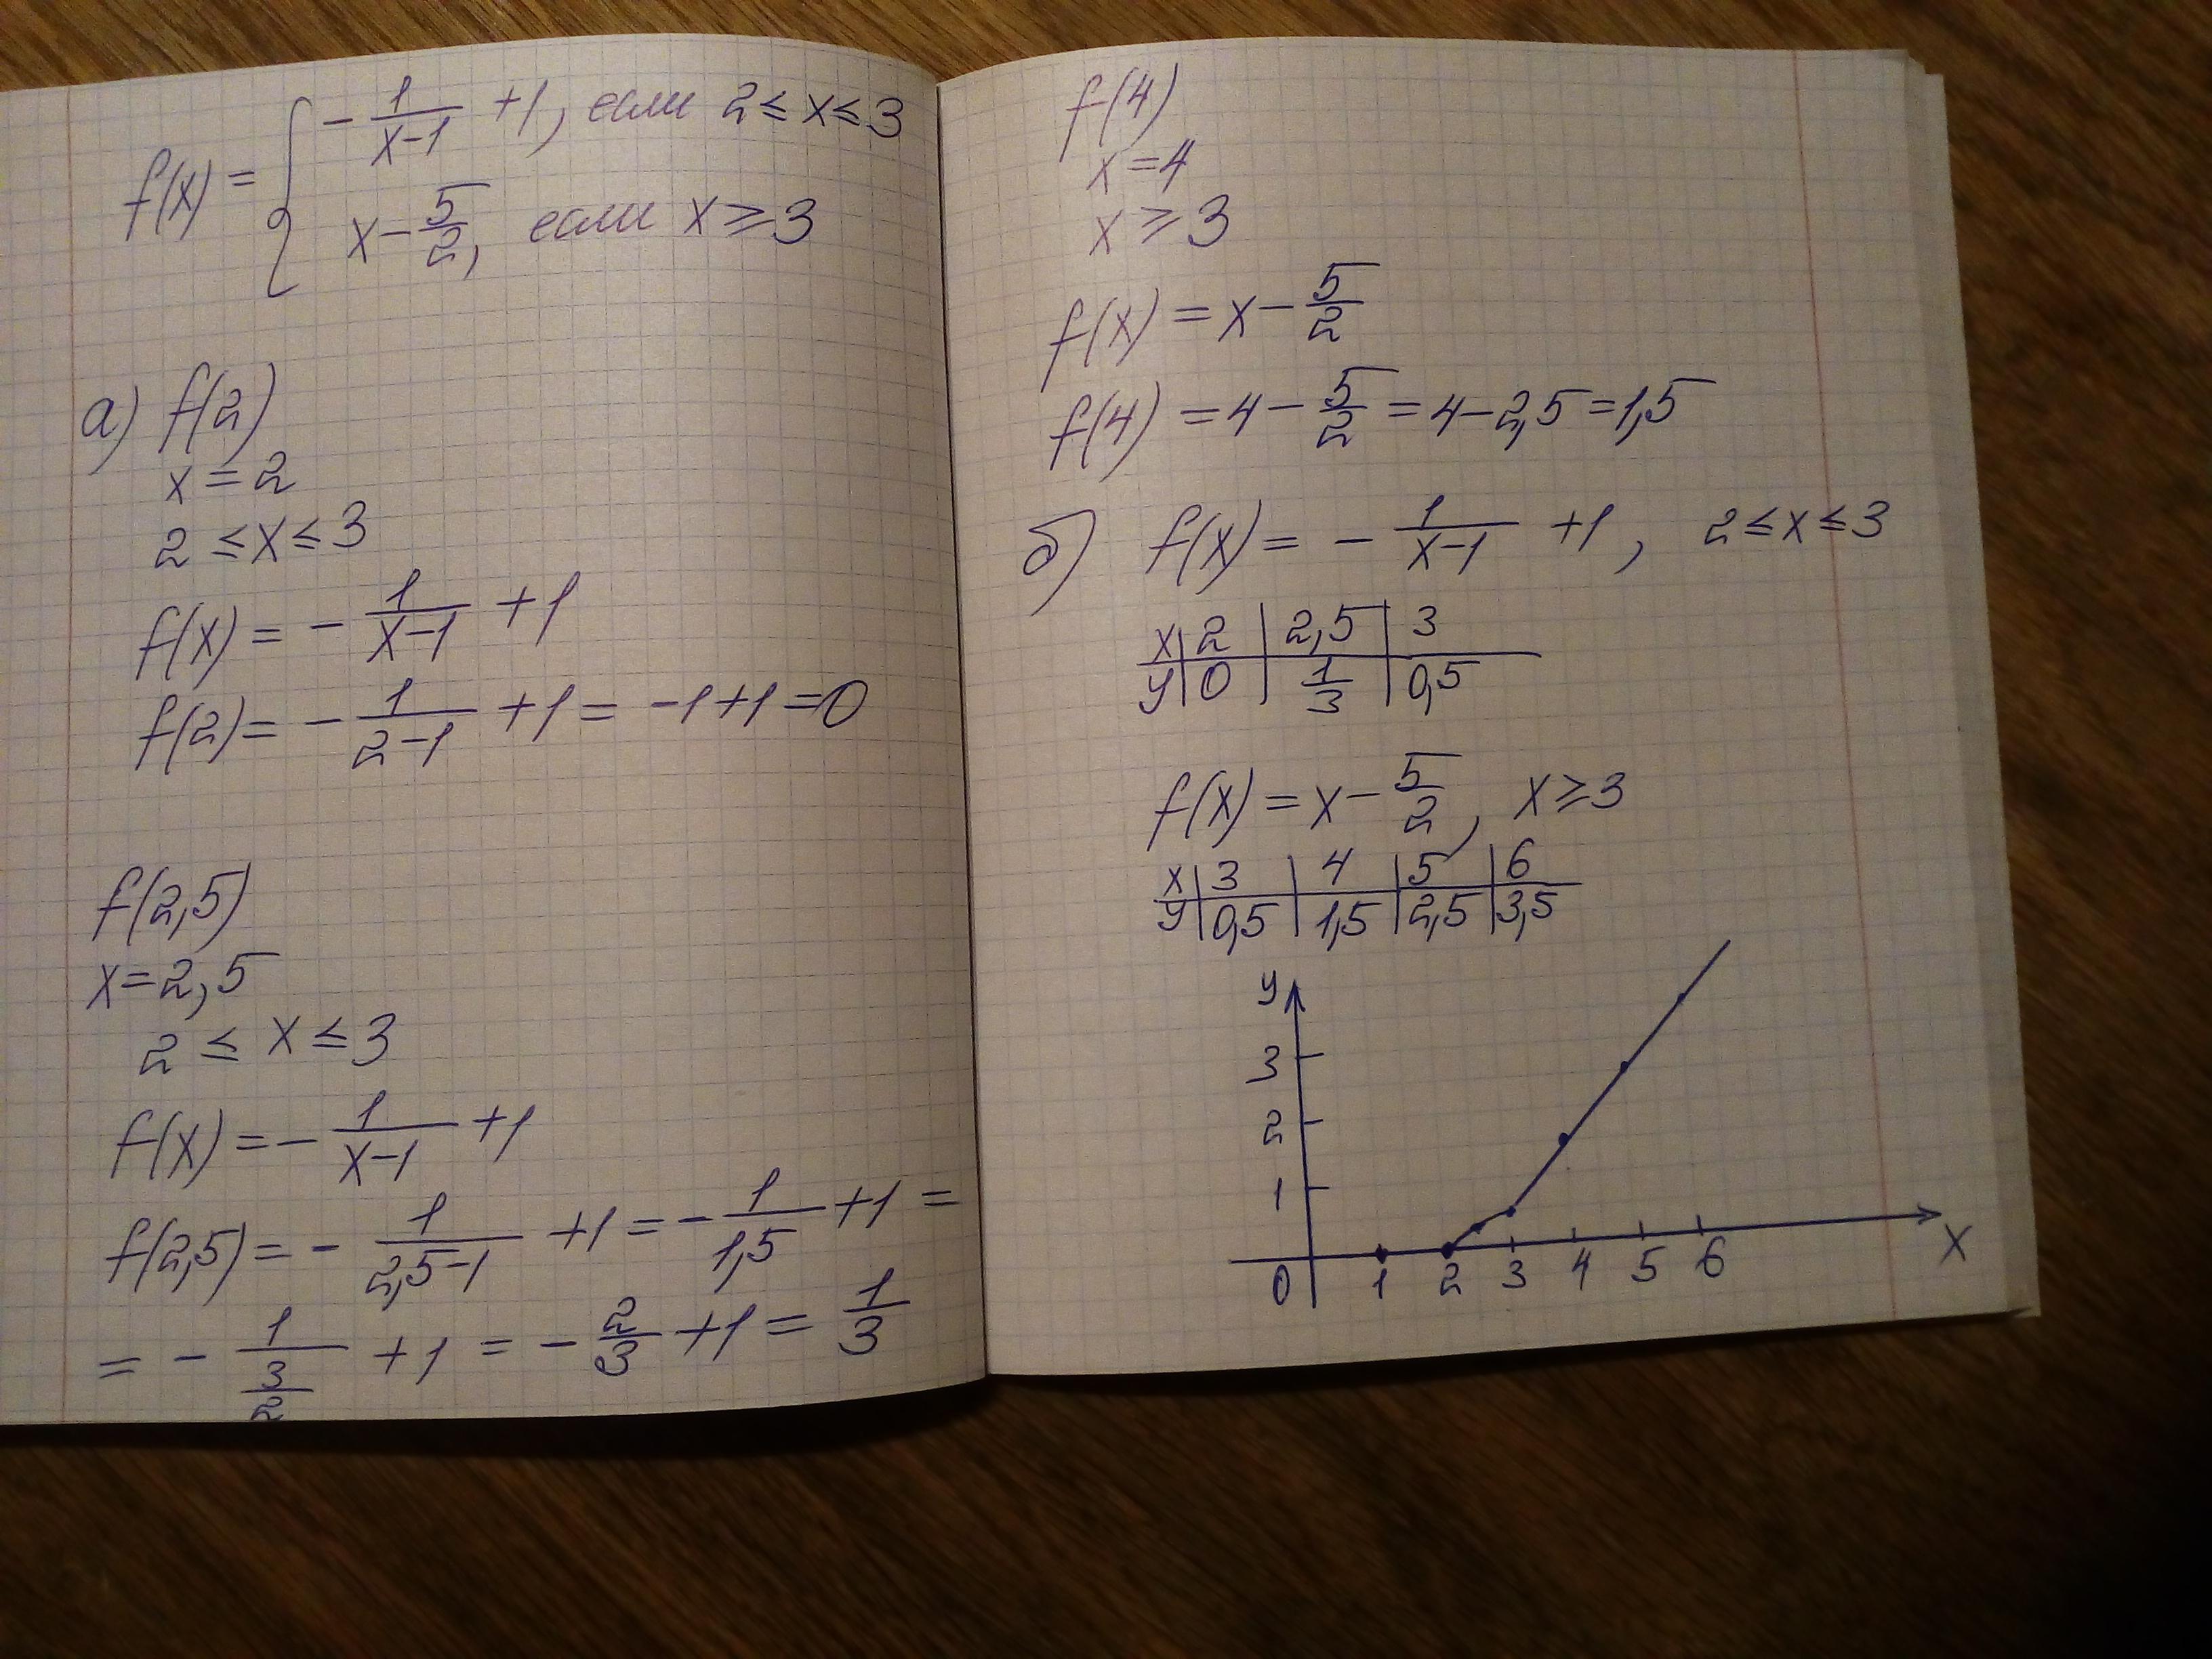 f(x) = { -1/(x-1) +1, если 2 ≤ x ≤ 3
x - 5/2, если x ≥ 3
а) f(2)
x = 2
2 ≤ x ≤ 3
f(x) = - 1/(x-1) +1
f(2) = - 1/(2-1) +1 = -1+1 = 0
f(2,5)
x = 2,5
2 ≤ x ≤ 3
f(x) = - 1/(x-1) +1
f(2,5) = - 1/(2,5-1) +1 = - 1/1,5 +1 =
= - 1/(3/2) +1 = - 2/3 +1 = 1/3
f(4)
x = 4
x ≥ 3
f(x) = x - 5/2
f(4) = 4 - 5/2 = 4 - 2,5 = 1,5
б) f(x) = - 1/(x-1) +1, 2 ≤ x ≤ 3
x | 2 | 2,5 | 3
y | 0 | 1/3 | 0,5
f(x) = x - 5/2, x ≥ 3
x | 3 | 4 | 5 | 6
y | 0,5 | 1,5 | 2,5 | 3,5
y
3
2
1
0 1 2 3 4 5 6 x